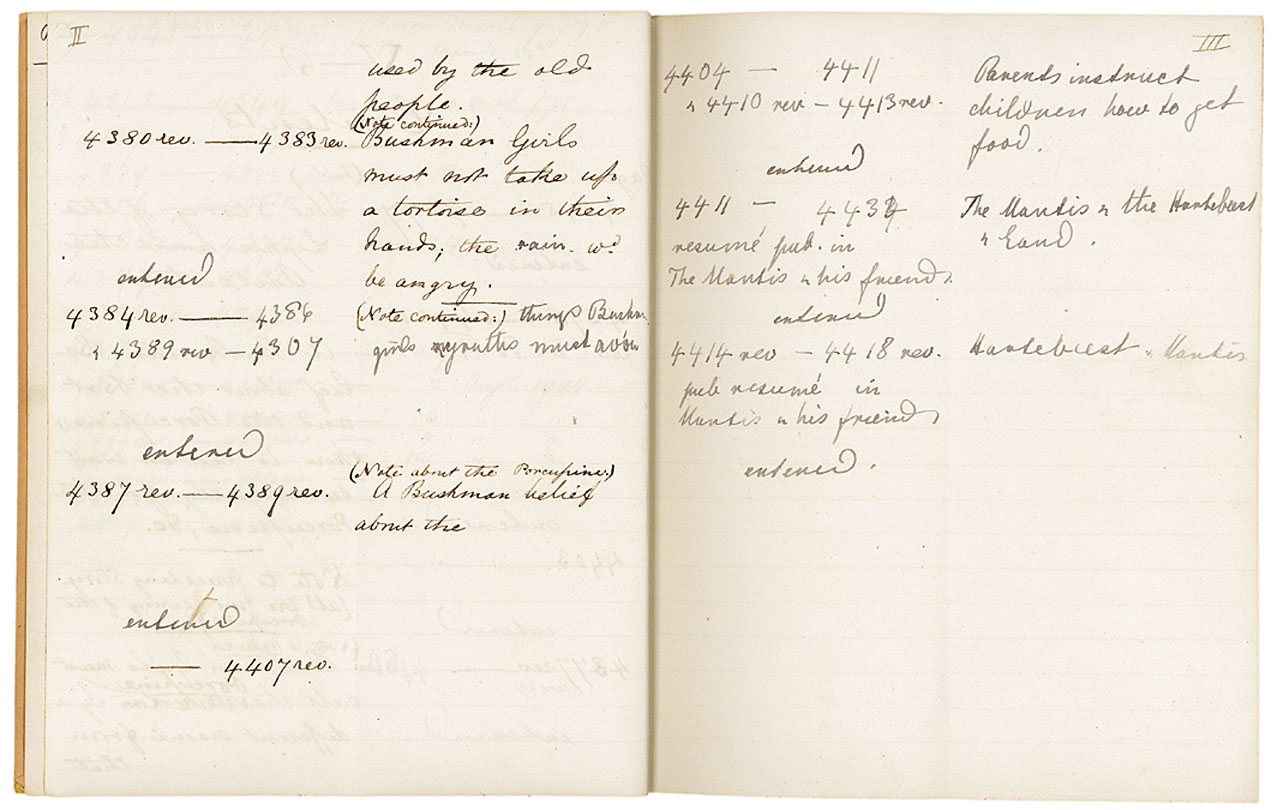 II
used by the old
people.
(Note continued:)
4380 rev. — 4383 rev. Bushman Girls
must not take up
a tortoise in their
hands; the rain wd
entered be angry.
4384 rev. — 4386 (Note continued:) things Bushm
& 4389 rev — 4307 girls & youths must avoid
entered
(Note about the Porcupine:)
4387 rev. — 4389 rev. A Bushman belief
about the
entered
— 4407 rev.
III
4404 — 4411 Parents instruct
& 4410 rev — 4413 rev. children how to get
food.
entered
4411 — 4434 The Mantis & the Hartebeest
resumé pub. in & Eland.
The Mantis & his friends
entered
4414 rev — 4418 rev. Hartebeest & Mantis
pub resumé in
Mantis & his friends
entered.